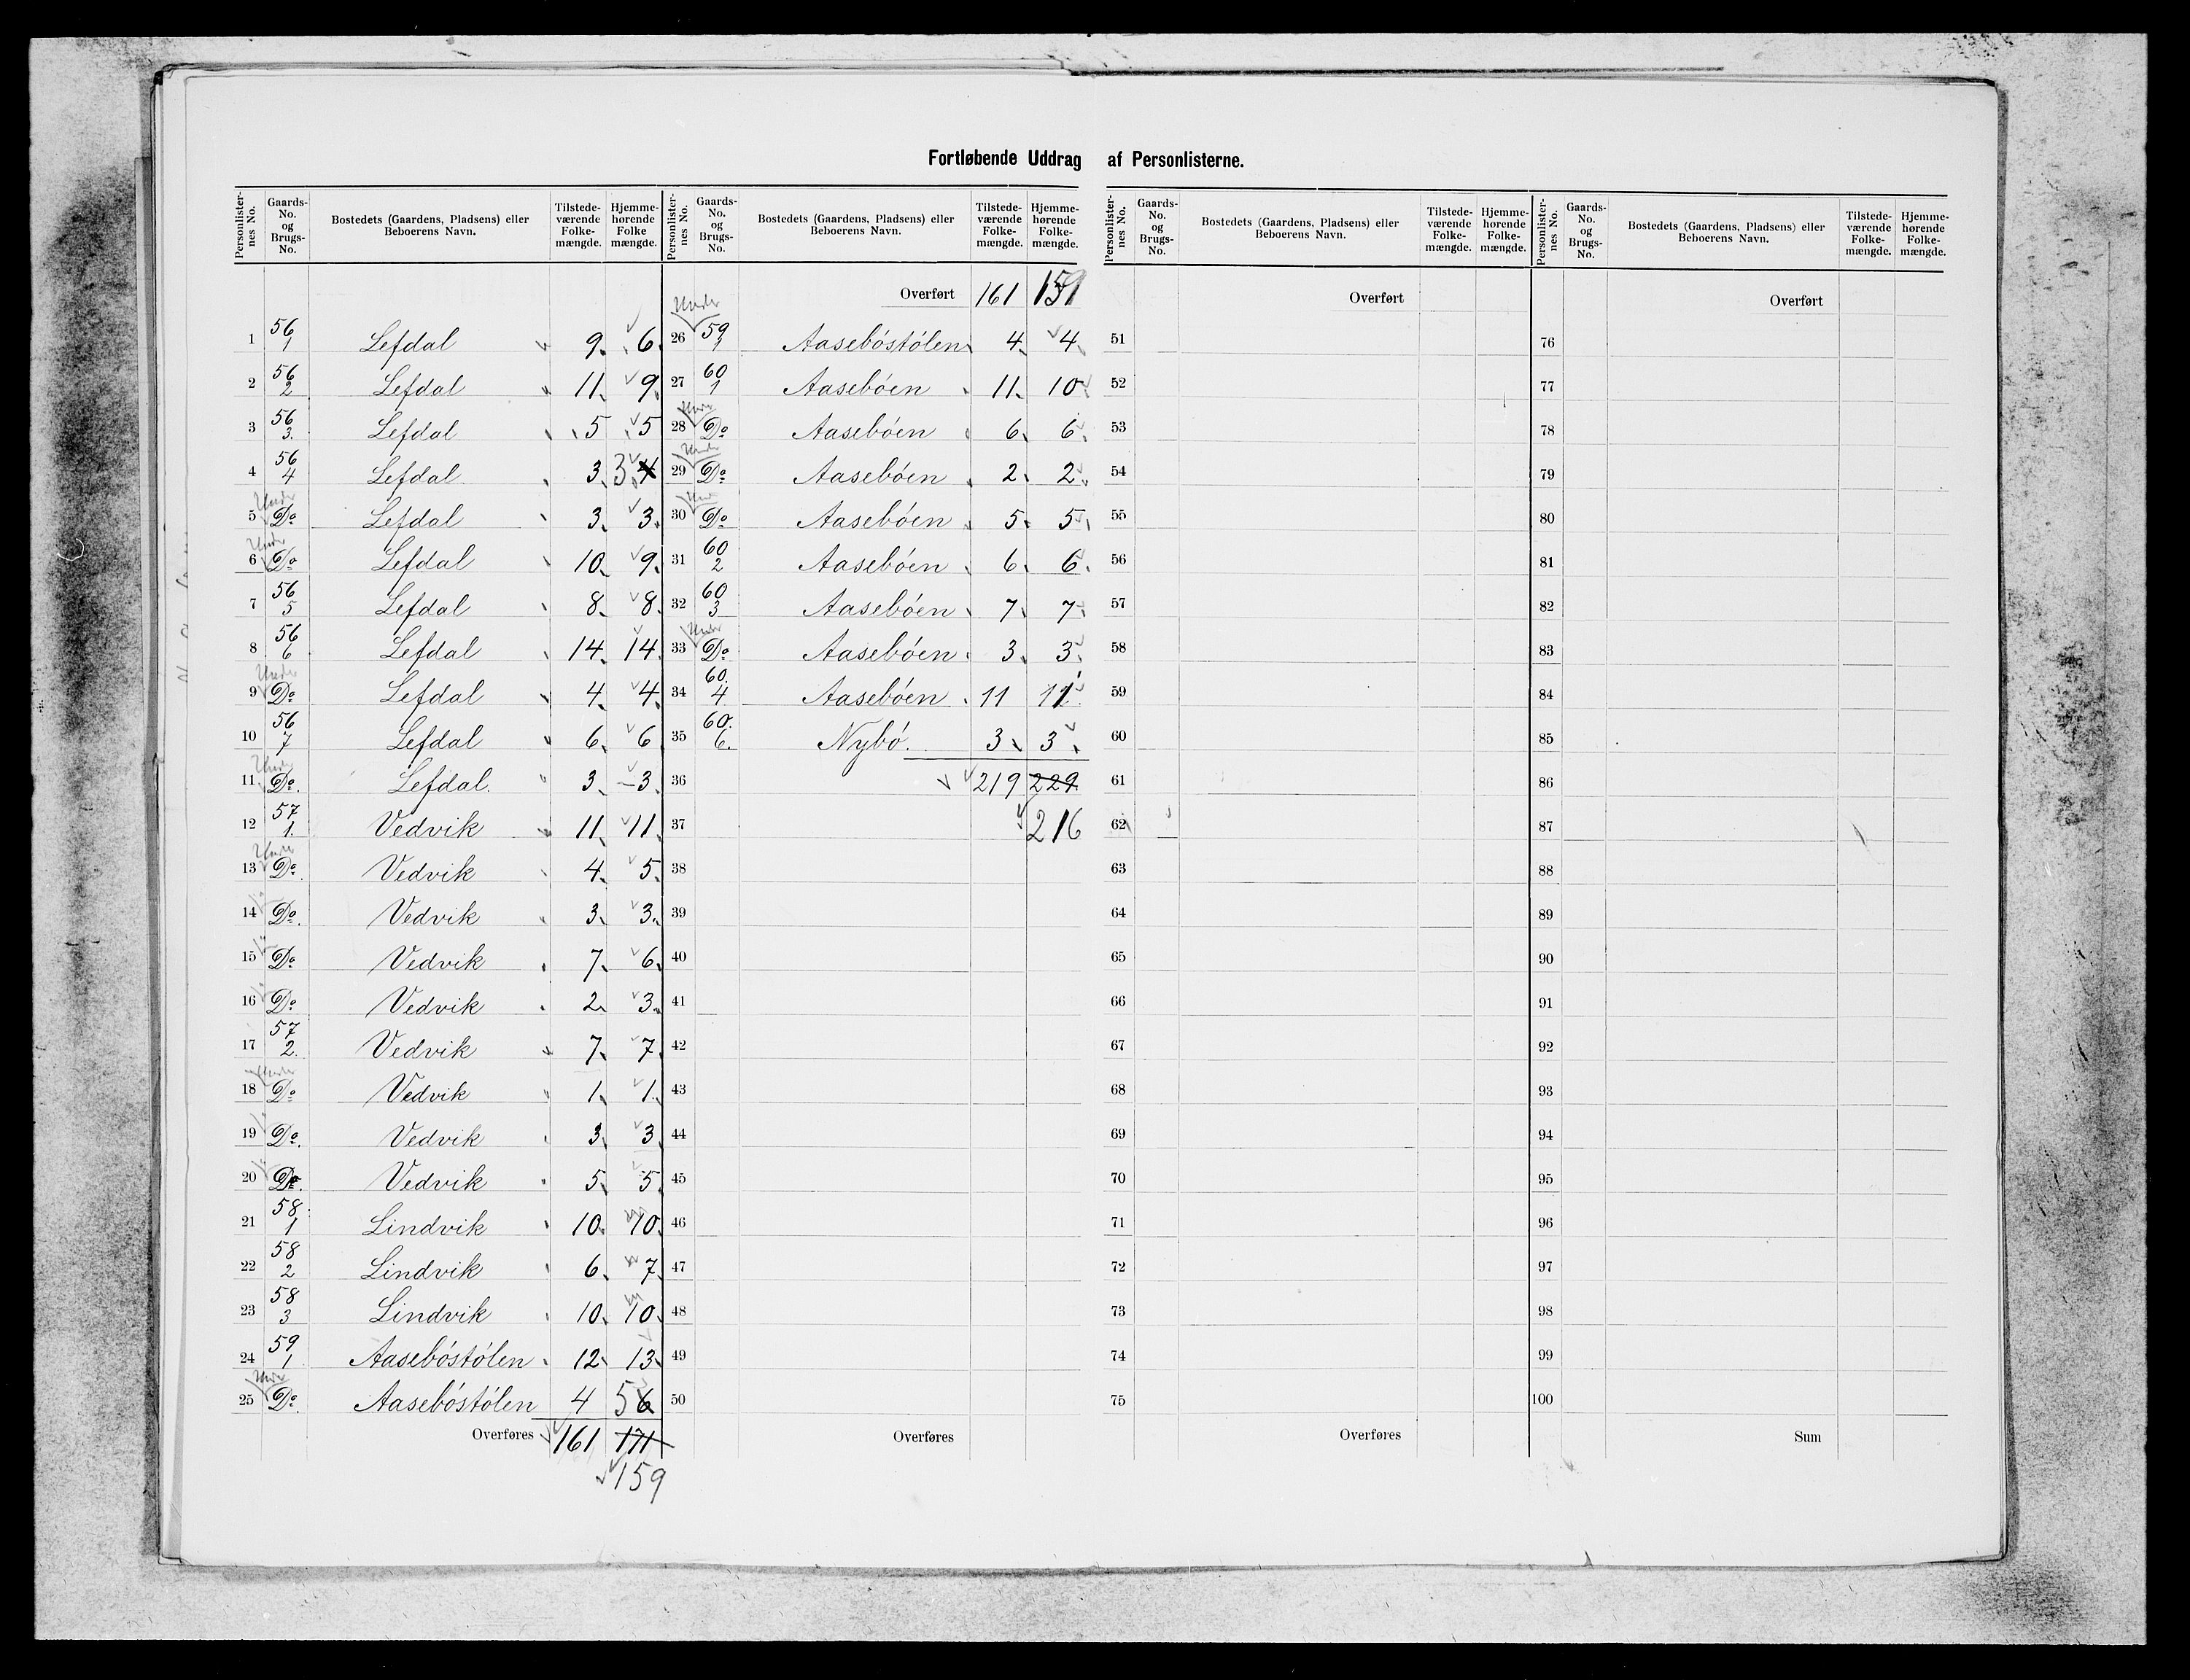 Fortløbende Uddrag af Personlisterne.
Personlister-nes No. | Gaards-No. og Brugs-No. | Bostedets (Gaardens, Pladsens) eller Beboerens Navn. | Tilstede-værende Folke-mængde. | Hjemme-hørende Folke mængde.
1 56/1 Lefdal 9 6
2 56/2 Lefdal 11 9
3 56/3 Lefdal 5 5
4 56/4 Lefdal 3 3 4
5 Under Do Lefdal 3 3
6 Under Do Lefdal 10 9
7 56/5 Lefdal 8 8
8 56/6 Lefdal 14 14
9 Under Do Lefdal 4 4
10 56/7 Lefdal 6 6
11 Under Do. Lefdal. 3 3
12 57/1. Vedvik 11 11
13 Under Do. Vedvik 4 5
14 Do. Vedvik 3 3
15 Do. Vedvik 7 6
16 Do. Vedvik 2 3
17 57/2. Vedvik 7 7
18 Under Do Vedvik 1 1
19 Do. Vedvik 3 3
20 Do. Vedvik 5 5
21 58/1 Lindvik 10 10
22 58/2 Lindvik 6 7
23 58/3 Lindvik 10 10
24 59/1 Aasebóstólen 12 13
25 Under Do. Aasebóstólen 4 5 6
Overføres 161 171
159
Personlister-nes No. | Gaards-No. og Brugs-No. | Bostedets (Gaardens, Pladsens) eller Beboerens Navn. | Tilstede-værende Folke-mængde. | Hjemme-hørende Folke-mængde.
Overført 161 159
26 Under 59/1 Aasebóstólen 4 4
27 60/1 Aasebóen 11 10
28 Under Do Aasebóen 6 6
29 Under Do Aasebóen 2 2
30 Under Do Aasebóen 5 5
31 60/2 Aasebóen 6 6
32 60/3 Aasebóen 7 7
33 Under Do Aasebóen 3 3
34 60./4 Aasebóen 11 11
35 60./6. Nybó. 3 3
36 219 229
37 216
38
39
40
41
42
43
44
45
46
47
48
49
50
Overføres
Personlister-nes No. | Gaards-No. og Brugs-No. | Bostedets (Gaardens, Pladsens) eller Beboerens Navn. | Tilstede-værende Folke-mængde. | Hjemme-hørende Folke-mængde.
Overført
51
52
53
54
55
56
57
58
59
60
61
62
63
64
65
66
67
68
69
70
71
72
73
74
75
Overføres
Personlister-nes No. | Gaards-No. og Brugs-No. | Bostedets (Gaardens, Pladsens) eller Beboerens Navn. | Tilstede-værende Folke-mængde. | Hjemme-hørende Folke-mængde.
Overført
76
77
78
79
80
81
82
83
84
85
86
87
88
89
90
91
92
93
94
95
96
97
98
99
100
Sum